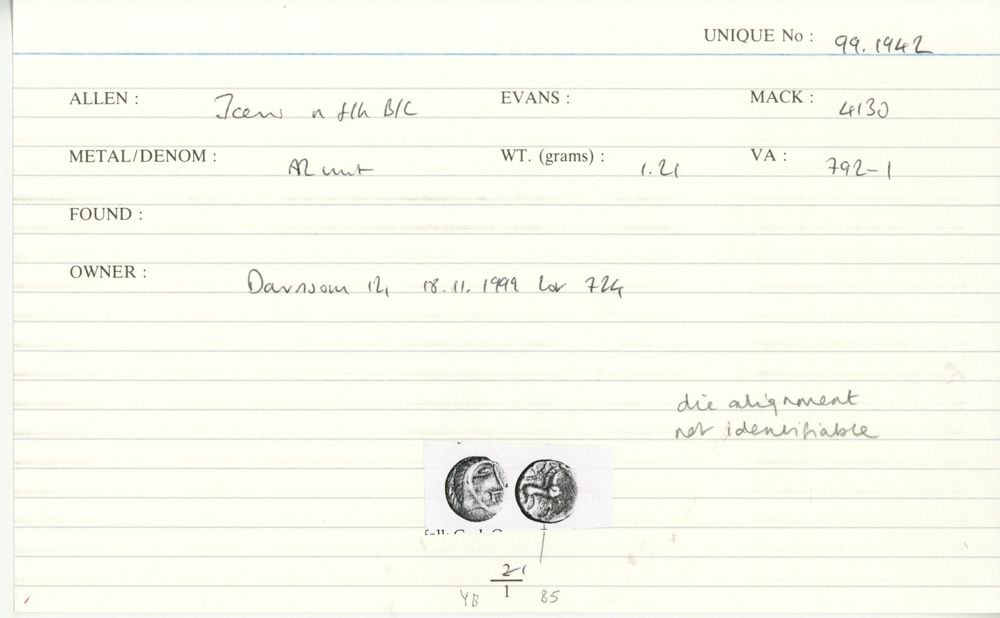 UNIQUE No : 99.1942
ALLEN : Iceni B/C EVANS : MACK : 4130
METAL/DENOM : AR unit WT. (grams) : 1.21 VA : 792-1
FOUND :
OWNER : 18.11.1999 Lot 724
die alignment
not identifiable
21
1
YB 85